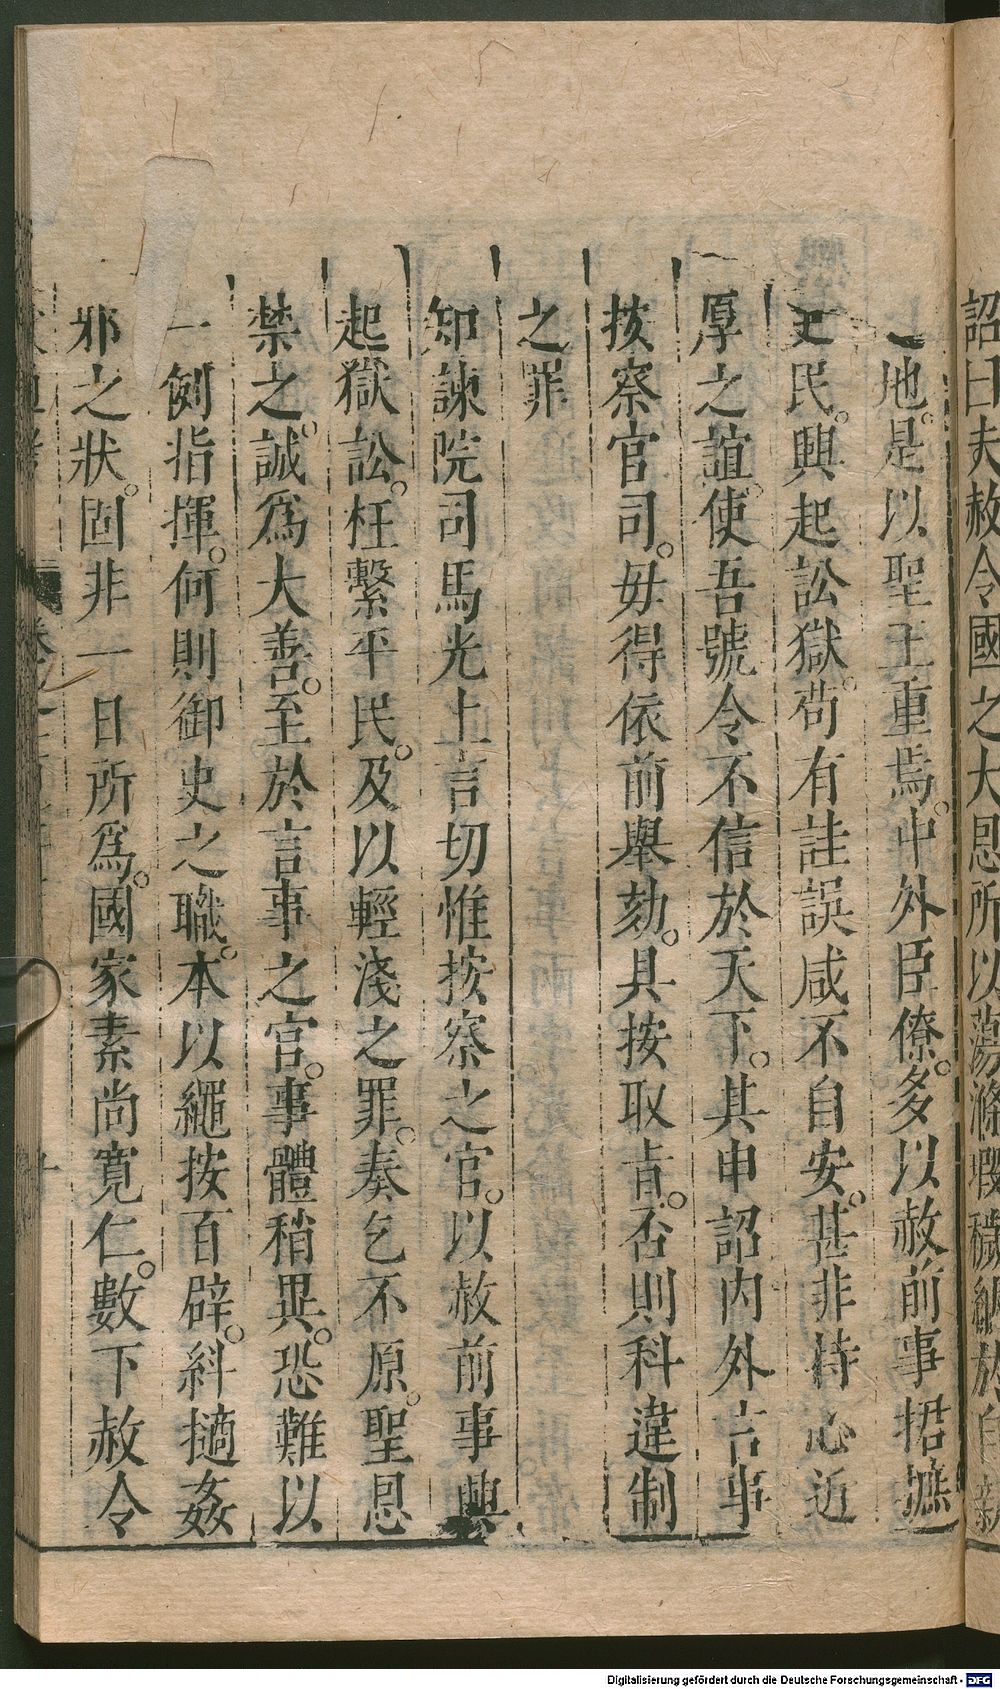 詔曰夫赦令國之大恩所以蕩滌瑕穢納於自新
之地。是以聖王重焉。中外臣僚。多以赦前事捃摭
吏民。興起訟獄。茍有詿誤咸不自安。甚非持心近
厚之誼。使吾號令不信於天下。其申詔內外言事
按察官司。毋得依前舉劾。具按取旨。否則科違制
之罪
知諫院司馬光上言切惟按察之官。以赦前事興
起獄訟。枉繫平民。及以輕淺之罪。奏乞不原。聖恩
禁之。誠爲大善。至於言事之官。事體稍異。恐難以
一例指揮。何則御史之職。本以繩按百辟。糾擿姦
邪之狀。固非一日所爲。國家素尚寬仁。數下赦令
Digitalisierung gefördert durch die Deutsche Forschungsgemeinschaft - DFG